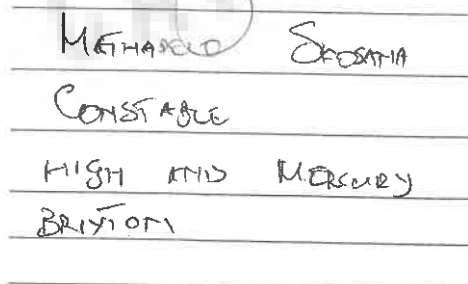 Skosana
CONSTABLE
HIGH AND MERCURY
BRIXTON